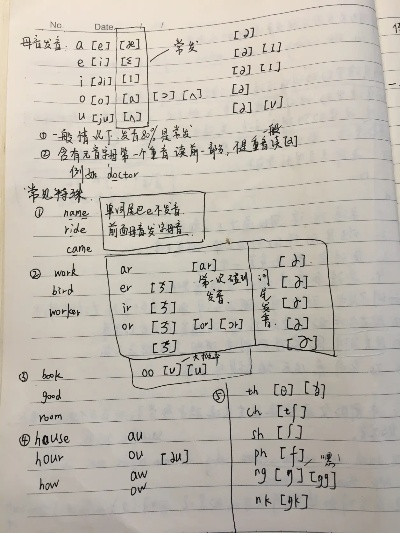 No.
Date / /
母音发音 a [e] [æ] 常发 [ə]
e [i] [ɛ] [ə] [ɪ]
i [aɪ] [ɪ] [ə] [ɪ]
o [o] [ɑ] [ɔ] [ʌ] [ə]
u [ju] [ʌ] [ə] [ʊ]
① 一般情况下 发音80%是常发
② 含有元音字母第一个重音读前一部分, 非重音一般读[ə]
例如 doctor
常见特殊
① name 单词尾巴e不发音
ride 前面母音发字母音
came
② work ar [ɑr] 第一次碰到 词尾发音 [ɚ]
bird er [ɝ] 发音 [ɚ]
worker ir [ɝ] [ɚ]
or [ɝ] [or] [ɔr] [ɚ]
[ɝ] [ɚ]
③ book oo [ʊ] [u]
good
room
④ house au
hour ou [aʊ]
how aw
ow
⑤ th [θ] [ð]
ch [tʃ]
sh [ʃ]
ph [f]
ng [ŋ] [ŋg]
nk [ŋk]